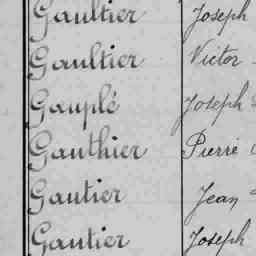 Gaultier Joseph
Gaultier Victor
Gauplé Joseph
Gauthier Pierre
Gautier Jean
Gautier Joseph